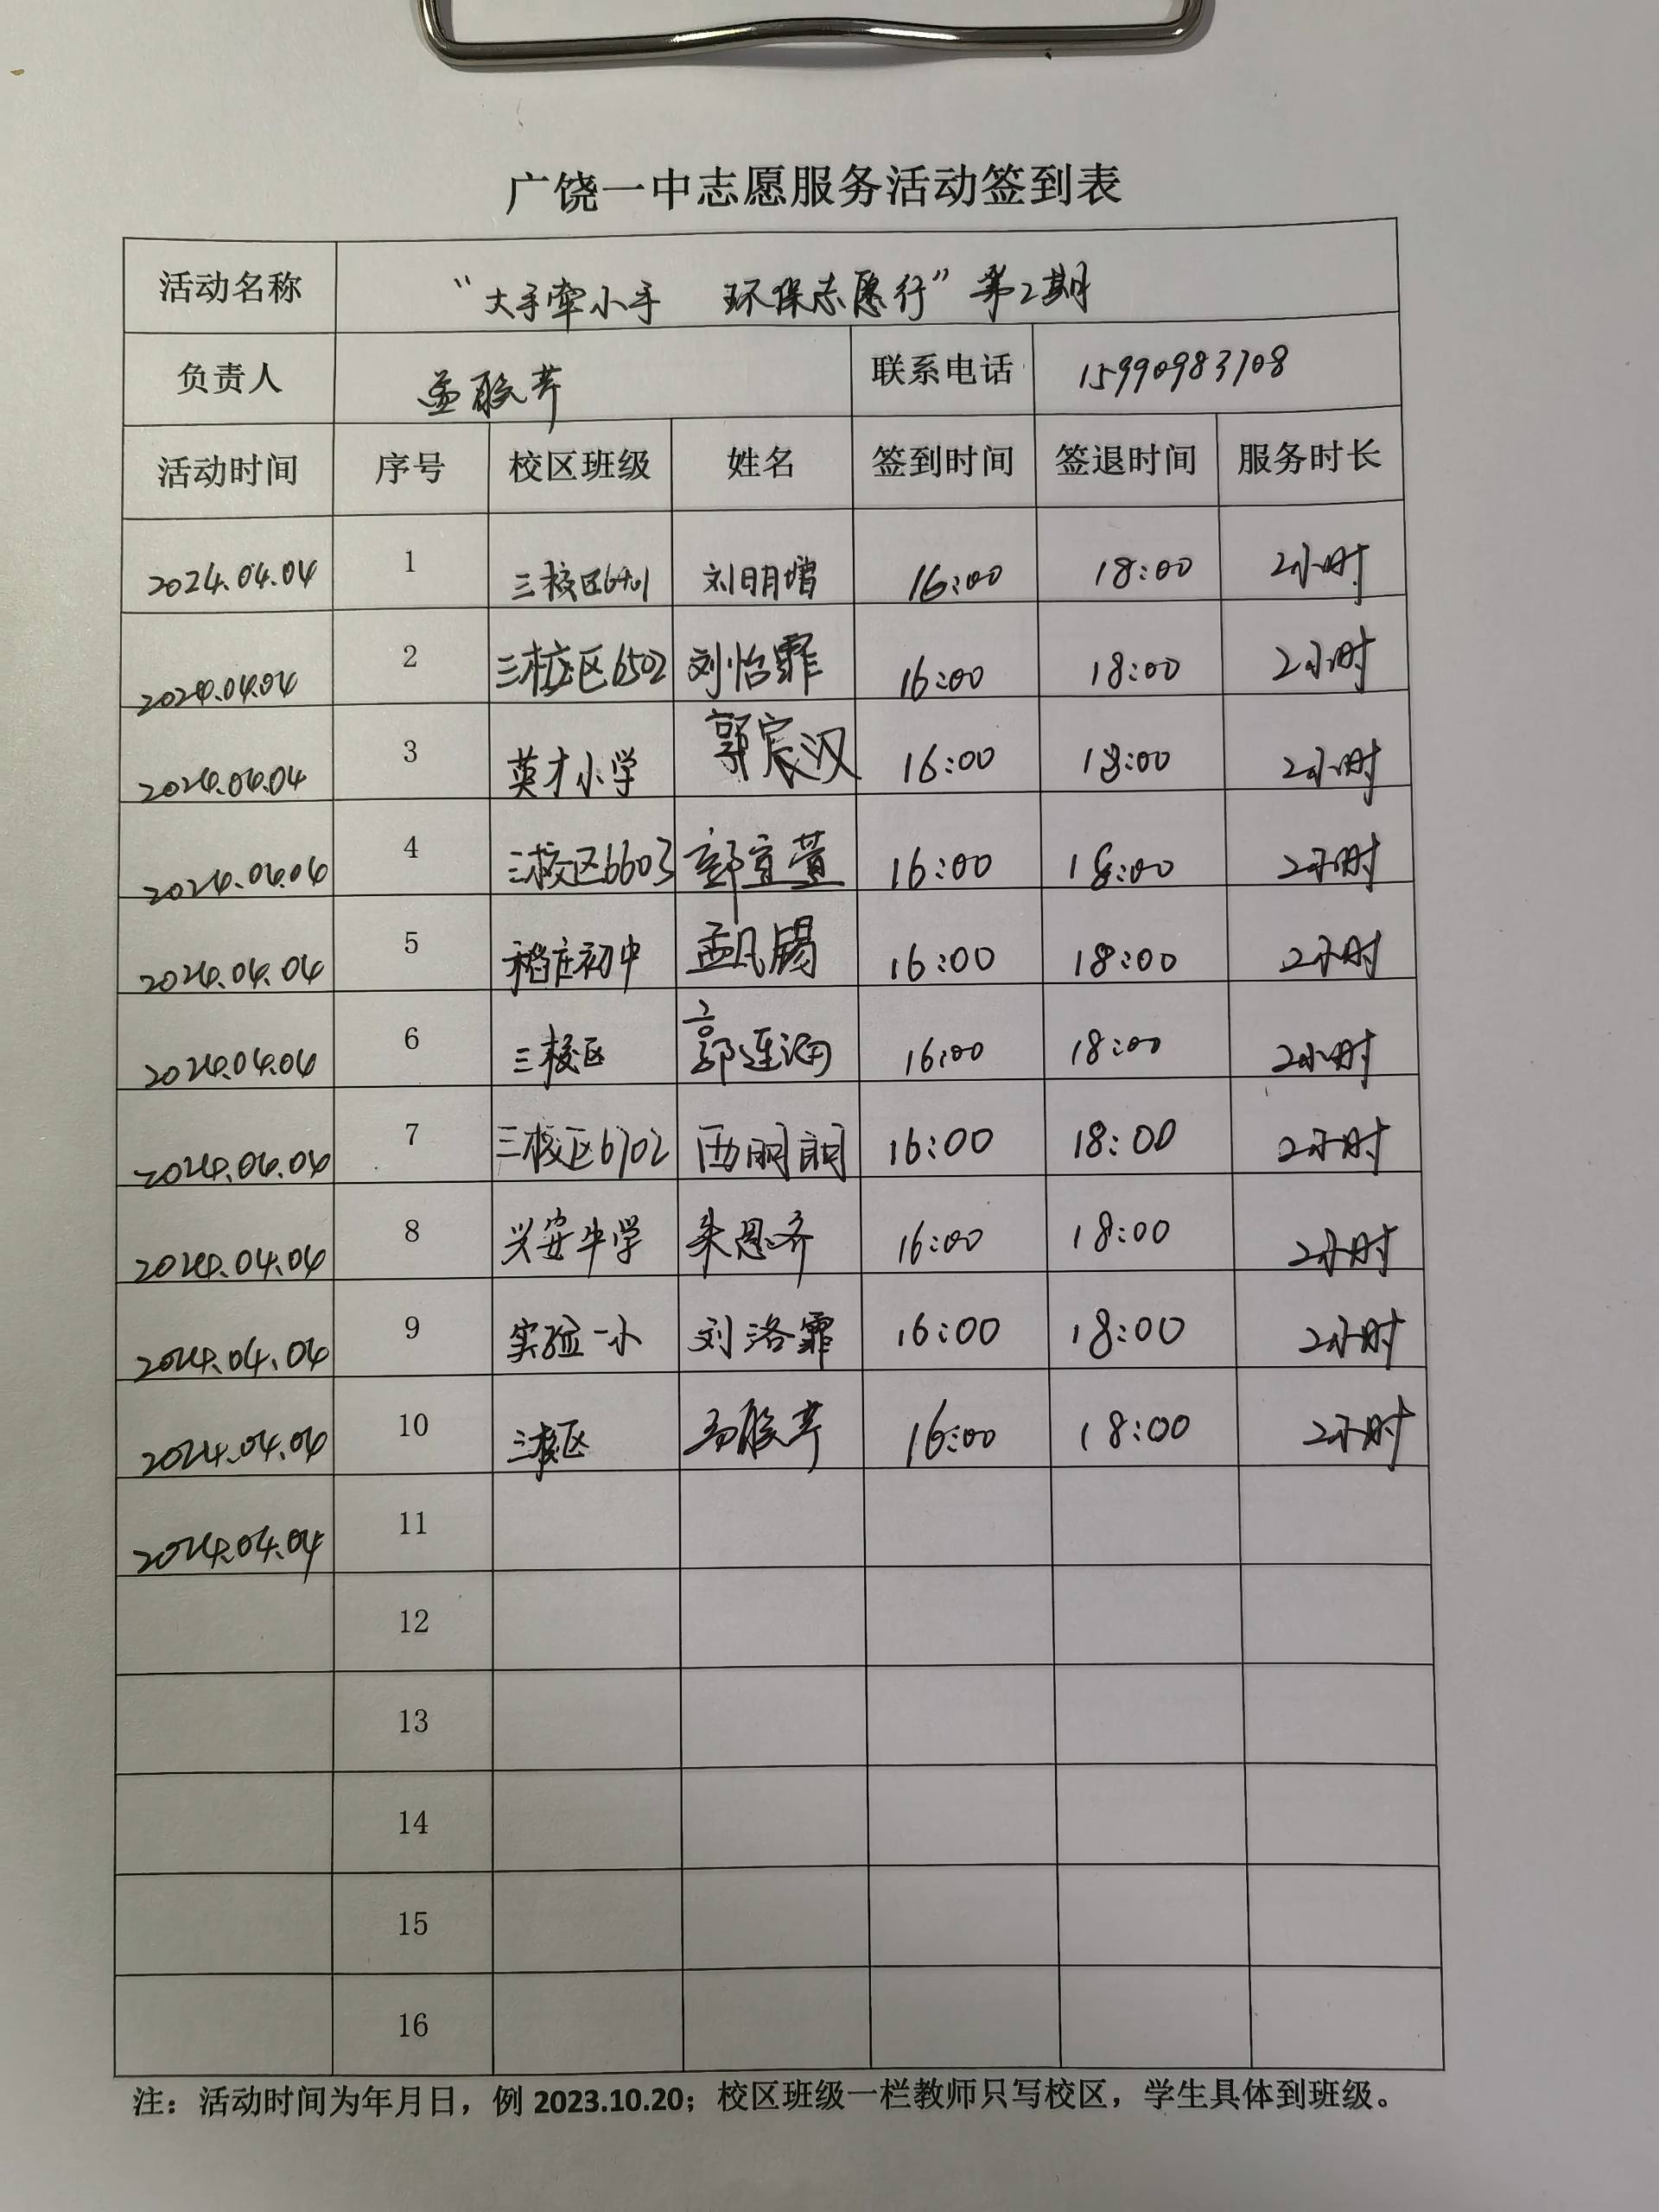 广饶一中志愿服务活动签到表
活动名称 “大手牵小手 环保志愿行”第2期
负责人 联系电话 15990983708
活动时间 序号 校区班级 姓名 签到时间 签退时间 服务时长
2024.04.04 1 三校区 刘明增 16:00 18:00 2小时
2024.04.04 2 三校区6502 刘怡霏 16:00 18:00 2小时
2024.04.04 3 英才小学 郭宸汉 16:00 18:00 2小时
2024.04.04 4 三校区6603 郭宜萱 16:00 18:00 2小时
2024.04.04 5 稻庄初中 孟凡锡 16:00 18:00 2小时
2024.04.04 6 三校区 郭连 16:00 18:00 2小时
2024.04.04 7 三校区6702 16:00 18:00 2小时
2024.04.04 8 兴安中学 朱恩齐 16:00 18:00 2小时
2024.04.04 9 实验一小 刘洛霏 16:00 18:00 2小时
2024.04.04 10 三校区 16:00 18:00 2小时
2024.04.04 11
12
13
14
15
16
注：活动时间为年月日，例 2023.10.20；校区班级一栏教师只写校区，学生具体到班级。